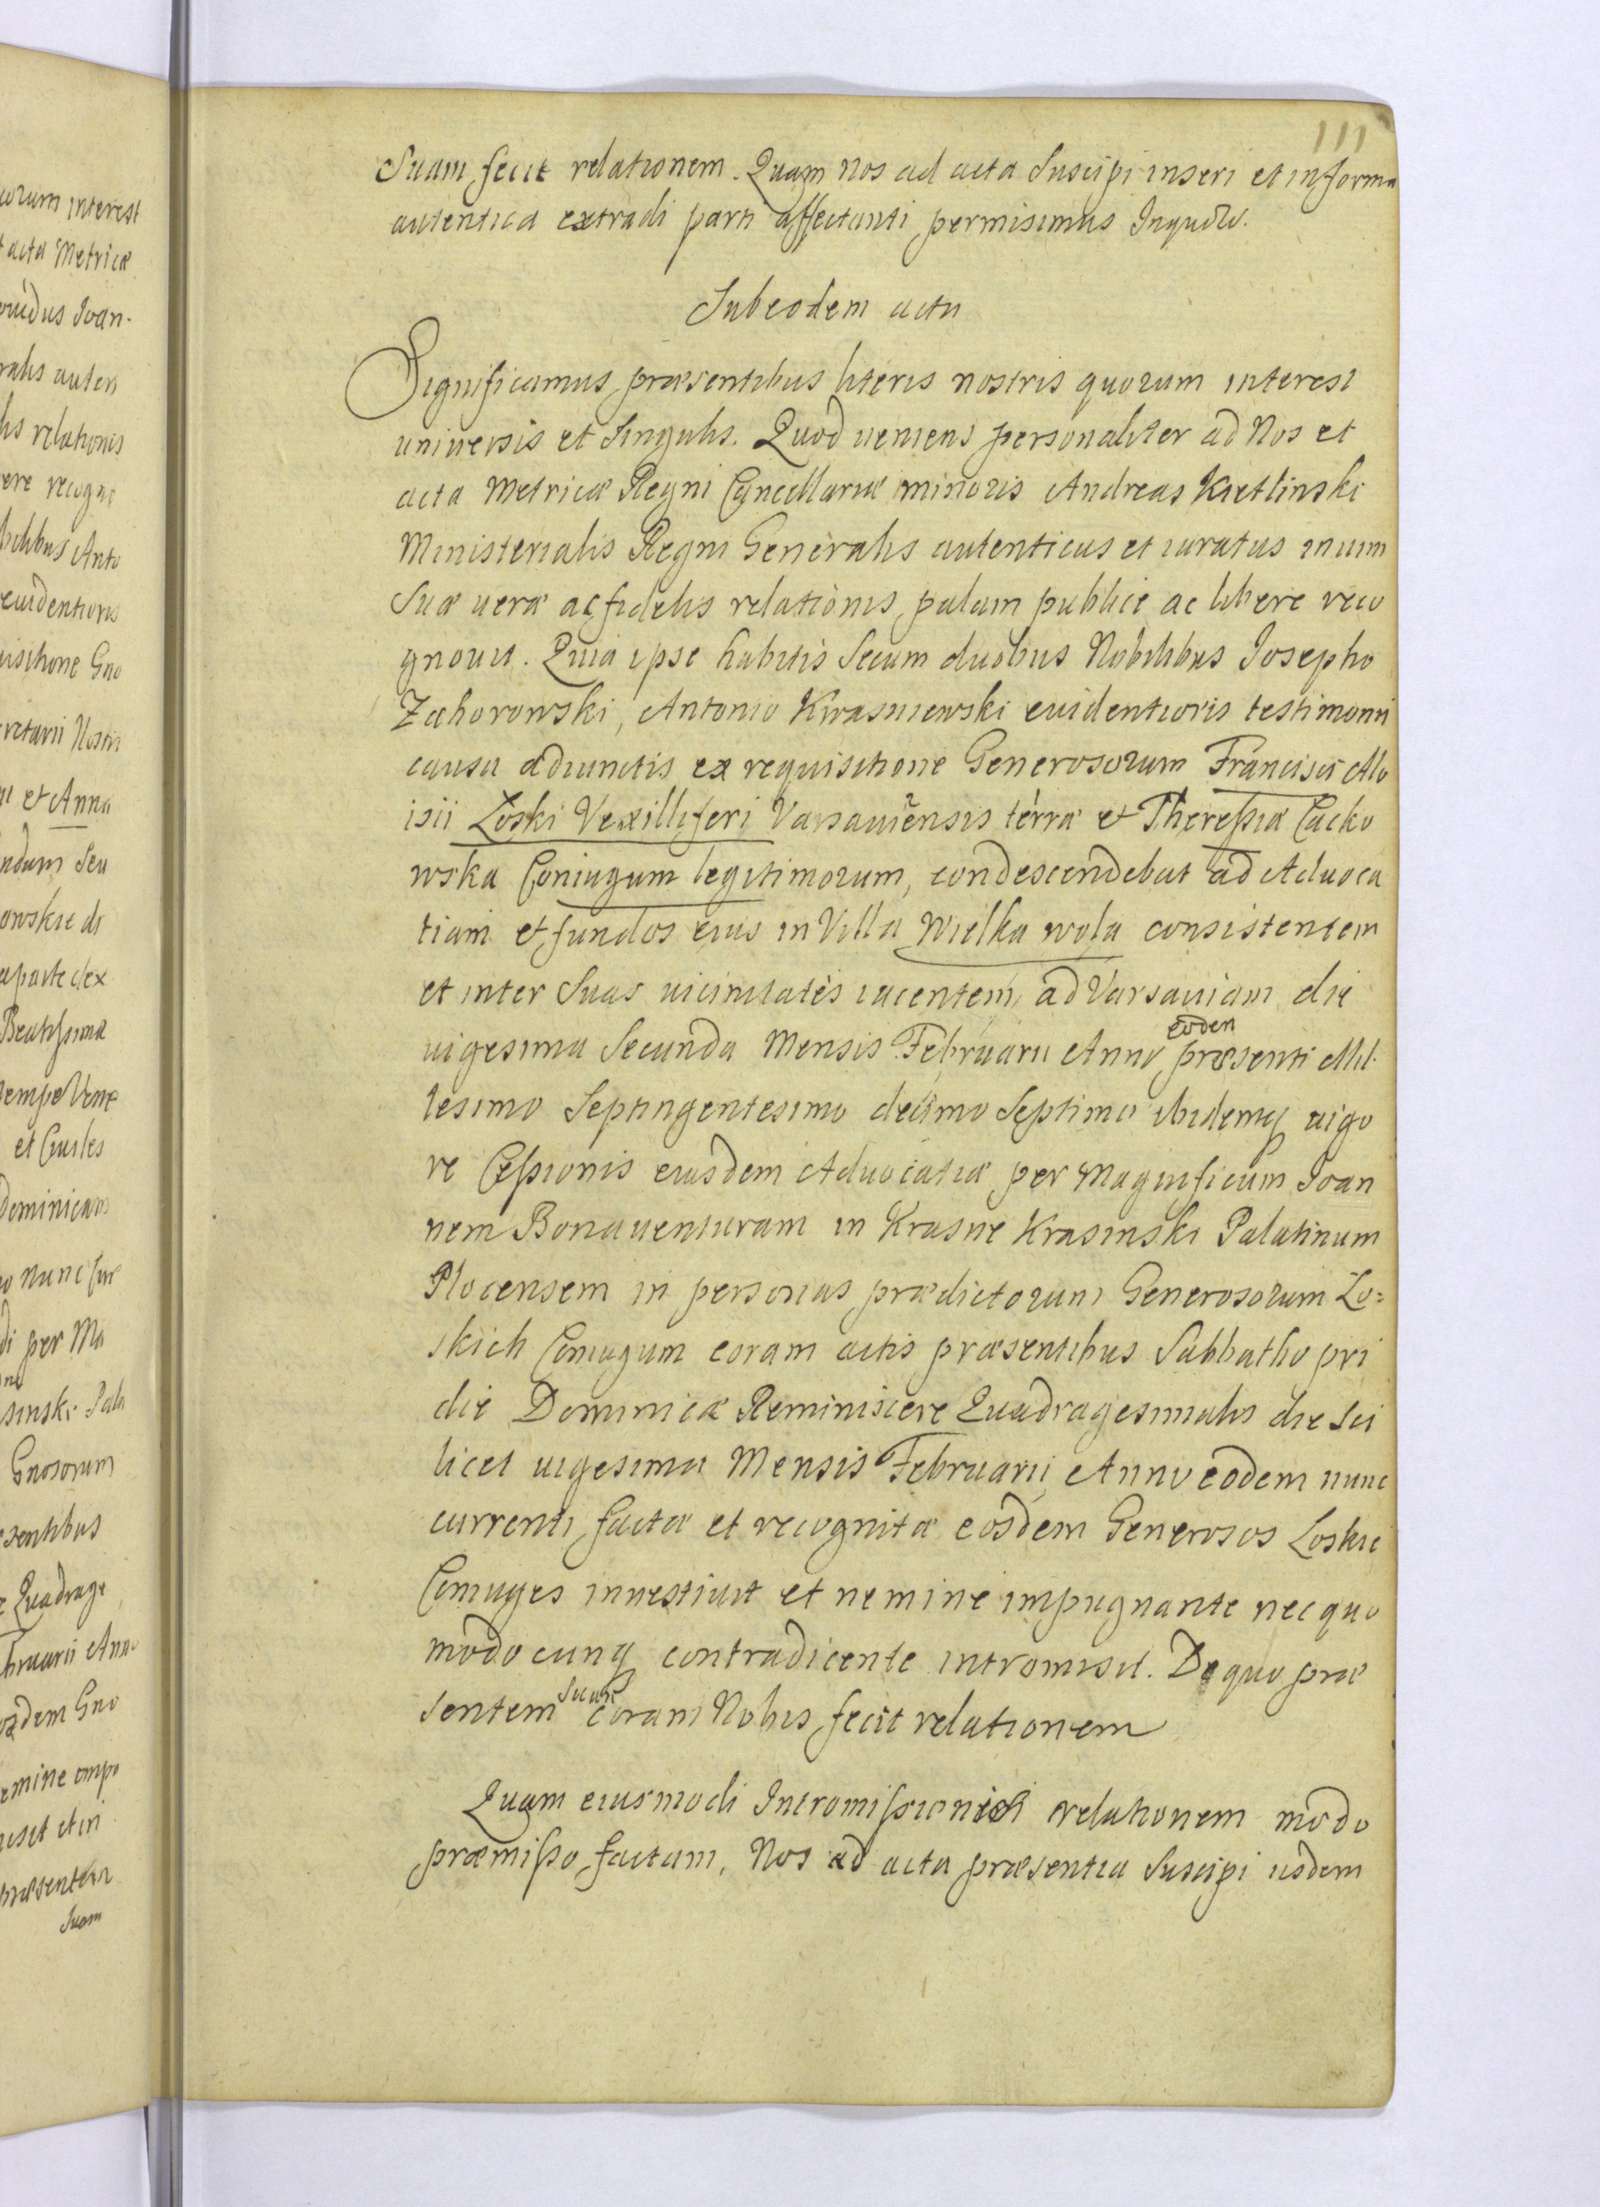 111
Suam fecit relationem. Quam nos ad acta Suscipi inseri et in forma
autentica extradi parti affectanti permisimus
Sub eodem actu
Significamus præsentibus literis nostris quorum interest
universis et Singulis. Quod veniens personaliter ad Nos et
acta Metricæ Regni Cancellariæ minoris Andreas Kietlinski
Ministerialis Regni Generalis autenticus et iuratus in vim
Suæ veræ ac fidelis relationis palam publice ac libere reco
gnovit. Quia ipse habitis Secum duobus Nobilibus Josepho
Zahorowski, Antonio Kwasniewski evidentioris testimonii
causa adiunctis ex requisitione Generosorum Francisci Alo
isii Loski Vexilliferi Varsaviensis terræ et Theressiæ Cacko
wska Coniugum legitimorum, condescendebat ad Advoca
tiam et fundos eius in Villa Wielka wola consistentem
et inter Suas vicinitates iacentem ad Varsaviam die
vigesima Secunda Mensis Februarii Anno eodem præsenti Mil
lesimo Septingentesimo decimo Septimo ibidemq vigo
re Cessionis eiusdem Advocatiæ per Magnificum Joan
nem Bonaventuram in Krasne Krasinski Palatinum
Plocensem in personas prædictorum Generosorum Lo=
skich Coniugum coram actis præsentibus Sabbatho pri
die Dominicæ Reminiscere Quadragesimalis die Sci
licet vigesima Mensis Februarii Anno eodem nunc
currenti factæ et recognitæ eosdem Generosos Loskie
Coniuges investivit et nemine impugnante nec quo
modocunq contradicente intromisit. De quo præ
sentem Suam coram Nobis fecit relationem
Quam eiusmodi Intromissionis relationem modo
præmisso factam, Nos ad acta præsentia Suscipi iisdem